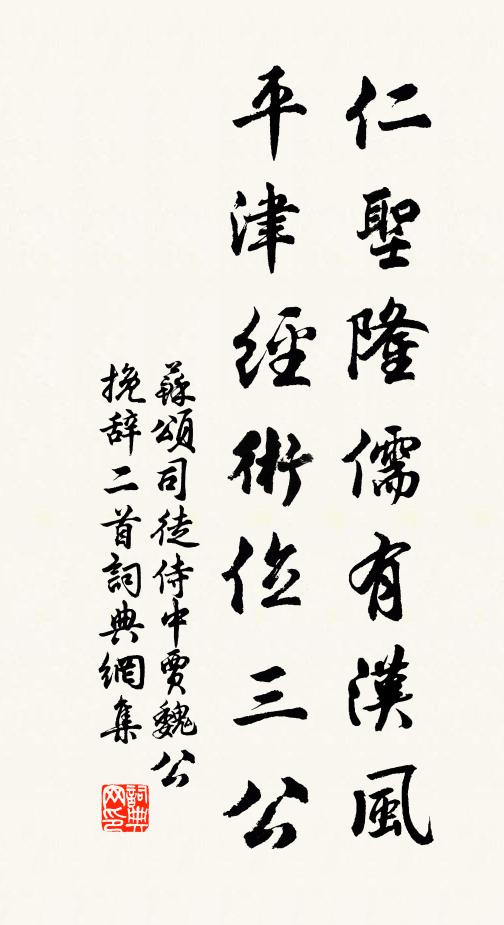 仁聖隆儒有漢風
平津經術位三公
蘇頌司徒侍中賈魏公
挽辞二首詞典網集
詞典網印